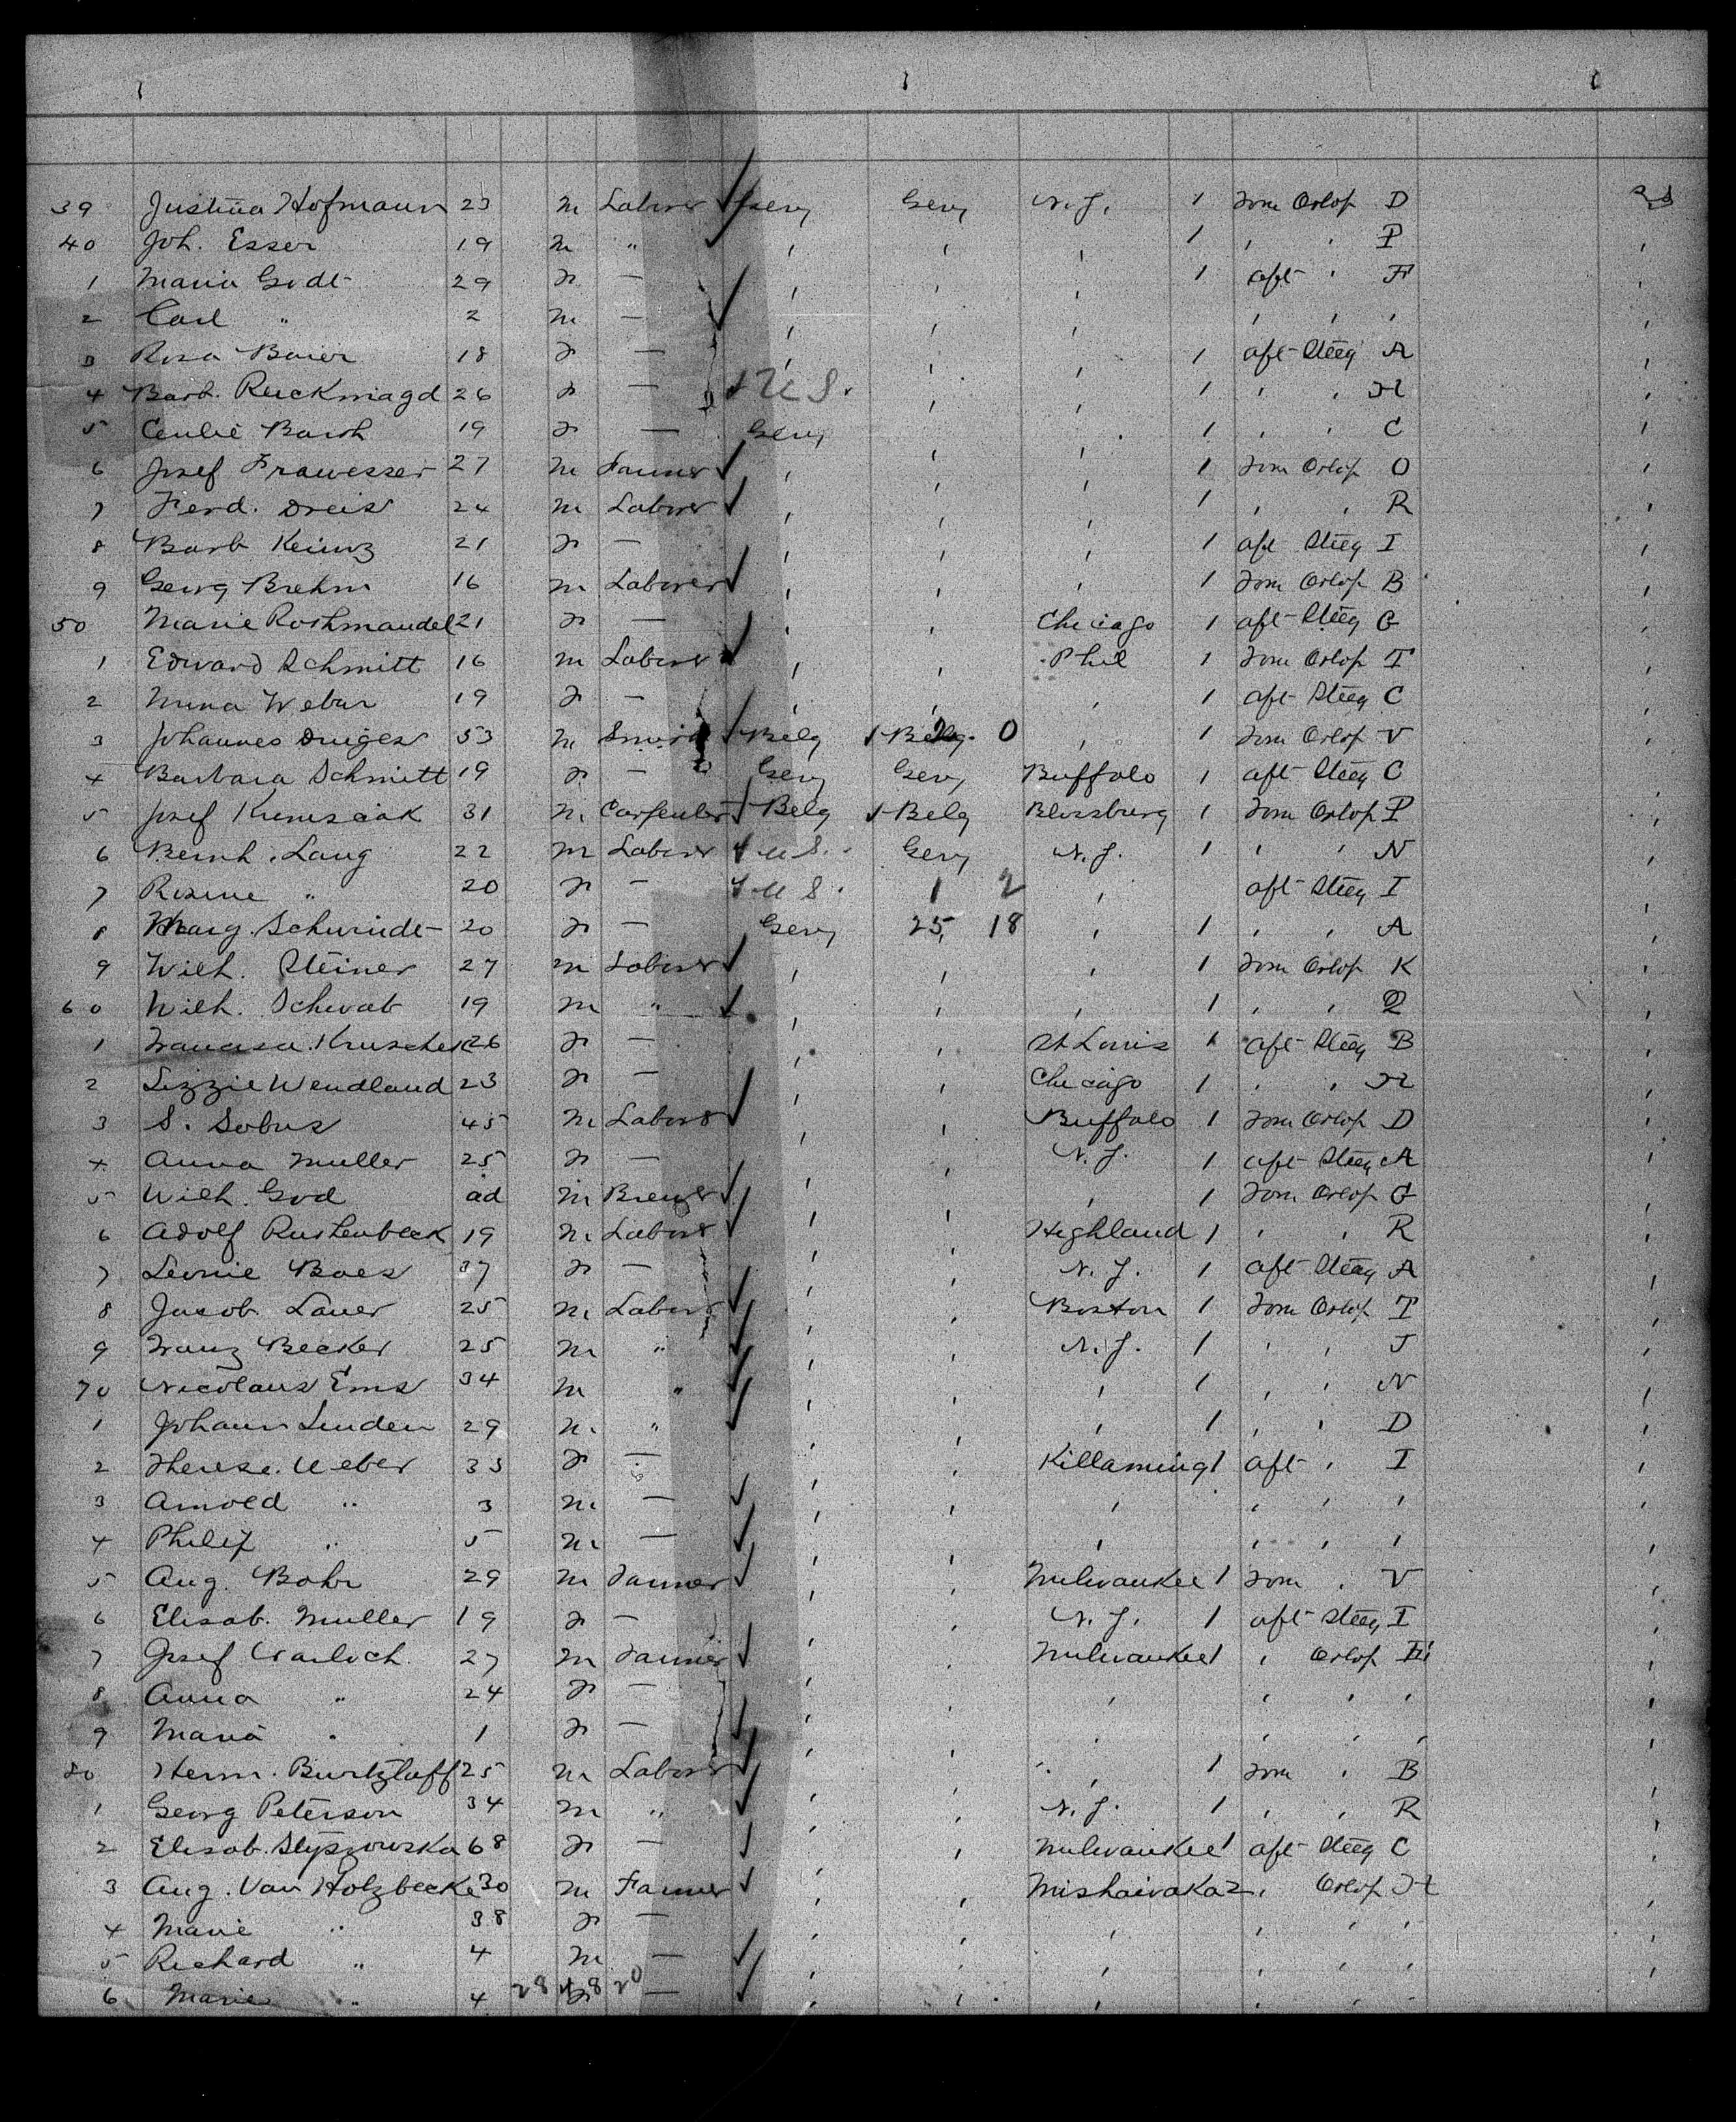 39 Justina Hofmann 23 m Laborer Gery Gery N.Y. 1 Form Orlop D
40 Joh. Esser 19 m " ' ' ' 1 ' ' P
1 Maria Godt 29 f — ' ' ' 1 aft ' F
2 Carl " 2 m — ' ' ' ' ' '
3 Rosa Baier 18 f — ' ' ' 1 aft Steeg A
4 Barb. Ruckmagd 26 f — U S. ' ' 1 ' ' H
5 Barth 19 f — Gery ' ' 1 ' ' C
6 Josef Frawesser 27 m Farmer ' ' ' 1 Form Orlop O
7 Ferd. Dreis 24 m Laborer ' ' ' 1 ' ' R
8 Barb Keimz 21 f — ' ' ' 1 aft Steeg I
9 Georg Brehm 16 m Laborer ' ' ' 1 Form Orlop B
50 Marie Rothmandel 21 f — ' ' Chicago 1 aft Steeg G
1 Edward Schmitt 16 m Laborer ' ' Phil 1 Form Orlop T
2 Mina Weber 19 f — ' ' ' 1 aft Steeg C
3 Johannes Driges 53 m Belg Belg. 0 ' 1 Form Orlop V
4 Barbara Schmitt 19 f — Gery Gery Buffalo 1 aft Steeg C
5 Josef 31 m Carpenter Belg Belg Blossburg 1 Form Orlop P
6 Bernh. Lang 22 m Laborer U S. Gery N.Y. 1 ' ' N
7 Rosine " 20 f — U S. 1 2 ' aft Steeg I
8 Marg. Schwindt 20 f — Gery 25 18 ' 1 ' ' A
9 Wilh. Steiner 27 m Laborer ' ' ' 1 Form Orlop K
60 Wilh. Schwab 19 m " ' ' ' 1 ' ' Q
1 26 f — ' ' St Louis 1 aft Steeg B
2 Lizzie Wendland 23 f — ' ' Chicago 1 ' ' H
3 S. Sobus 45 m Laborer ' ' Buffalo 1 Form Orlop D
4 Anna Muller 25 f — ' ' N.Y. 1 aft Steeg A
5 Wilh. God ad m Brewer ' ' ' 1 Form Orlop G
6 Adolf Rustenbeck 19 m Laborer ' ' Highland 1 ' ' R
7 Leonie Boes 37 f — ' ' N.Y. 1 aft Steeg A
8 Jacob Lauer 25 m Laborer ' ' Boston 1 Form Orlop T
9 Franz Becker 25 m " ' ' N.Y. 1 ' ' J
70 Nicolaus Ems 34 m " ' ' ' 1 ' ' N
1 Johann Linden 29 m " ' ' ' 1 ' ' D
2 Therese Weber 33 f — ' ' Killaming 1 aft ' I
3 Arnold " 3 m — ' ' ' ' ' '
4 Philip " 5 m — ' ' ' ' ' '
5 Aug. Bohr 29 m Farmer ' ' Milwaukee 1 Form ' V
6 Elisab. Muller 19 f — ' ' N.Y. 1 aft Steeg I
7 Josef 27 m Farmer ' ' Milwaukee 1 ' Orlop
8 Anna " 24 f — ' ' ' ' ' '
9 Maria " 1 f — ' ' ' ' ' '
80 Herm. Burtzlaff 25 m Laborer ' ' ' 1 Form ' B
1 Georg Peterson 34 m " ' ' N.Y. 1 ' ' R
2 Elisab. Slyszowska 68 f — ' ' Milwaukee 1 aft Steeg C
3 Aug. Van Holzbecke 30 m Farmer ' ' Mishawaka 2 ' Orlop H
4 Marie " 38 f — ' ' ' ' ' '
5 Richard " 4 m — ' ' ' ' ' '
6 Marie " 4 28 f 48 20 — ' ' ' ' ' '